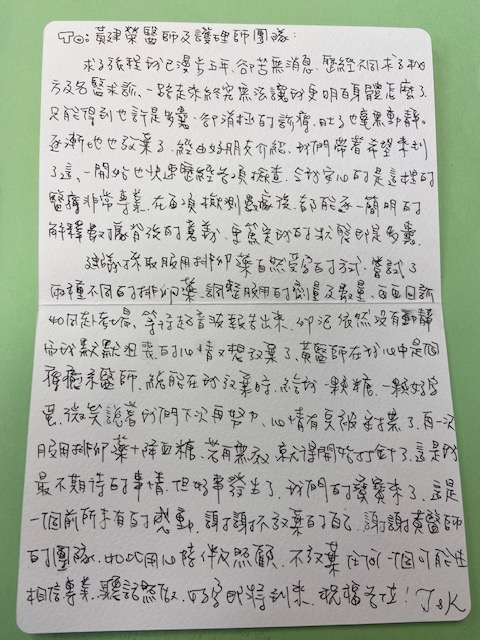 To: 黃建榮醫師及護理師團隊:
求子旅程已漫步五年、卻苦無消息、歷經不同求子
方及名醫求診、一路走來終究無法讓我更明白身體怎麼了、
只能得到也許是多囊、卻消極的診療、肚子也毫無動靜。
逐漸地也放棄了、經由好朋友介紹、我們帶著希望來到
了這、一開始也快速歷經各項檢查、令我安心的是這裡的
醫療非常專業、在每項檢測數據後、都能逐一簡明的
解釋數據背後的意義、更篤定我的狀態即是多囊
建議採取服用排卵藥自然受孕的方式、嘗試了
兩種不同的排卵藥、調整服用的劑量及數量、每每回診
如同赴考場、等待超音波報告出來、卵泡依然沒有動靜
而我默默沮喪的心情又想放棄了、黃醫師在我心中是個
療癒系醫師、總能在我放棄時、給我一顆糖、一顆好孕
蛋、微笑說著我們下次再努力、心情有被鼓舞了、再一次
服用排卵藥+降血糖、若再無效就得開始打針了、這是我
最不期待的事情、但好事發生了、我們的寶寶來了、這是
一個前所未有的感動、謝謝不放棄的自己、謝謝黃醫師
的團隊、如此用心陪伴及照顧、不放棄任何一個可能性
相信專業、聽話照做、好孕即將到來、祝福各位! J&K